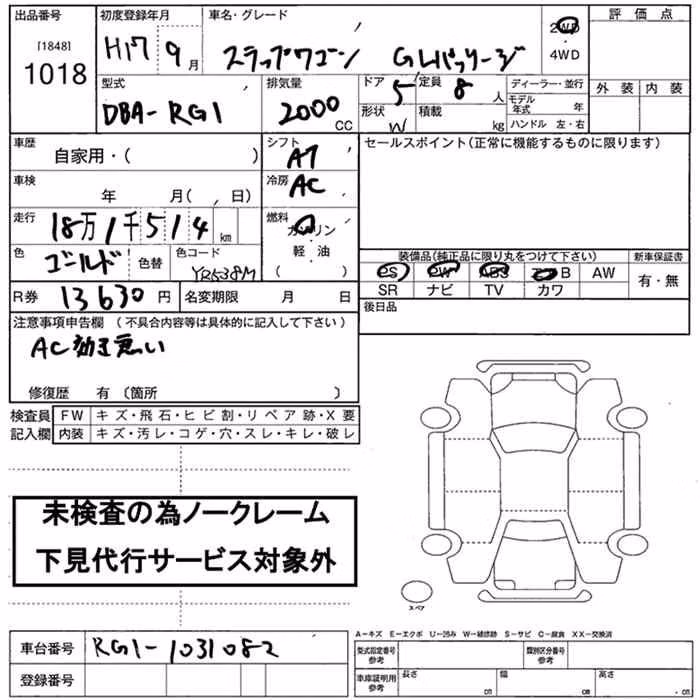 出品番号 初度登録年月 車名・グレード 評価点
[1848]
1018
H17 9月 ステップワゴン GLパッケージ 2WD・4WD
外装 内装
型式 DBA-RG1
排気量 2000 CC
ドア 5 定員 8 人
形状 W 積載 kg
ディーラー・並行
モデル年式 年
ハンドル 左・右
車歴 自家用・( )
シフト AT
セールスポイント(正常に機能するものに限ります)
車検 年 月( 、 日)
冷房 AC
走行 18万1千514km
燃料 ガソリン
軽・油
( )
色 ゴールド 色替 色コード YR538M
装備品(純正品に限り丸をつけて下さい) 新車保証書
PS PW ABS B AW 有・無
SR ナビ TV カワ
R券 13630円 名変期限 月 日
後日品
注意事項申告欄 (不具合内容等は具体的に記入して下さい)
AC効き悪い
修復歴 有 〔箇所 〕
検査員 FW キズ・飛石・ヒビ割・リペア跡・X要
記入欄 内装 キズ・汚レ・コゲ・穴・スレ・キレ・破レ
未検査の為ノークレーム
下見代行サービス対象外
スペア
A−キズ E−エクボ U−凹み W−補修跡 S−サビ C−腐食 XX−交換済
車台番号 RG1-1031082
型式指定番号 参考 類別区分番号 参考
登録番号
車庫証明用 参考 長さ cm 幅 cm 高さ cm